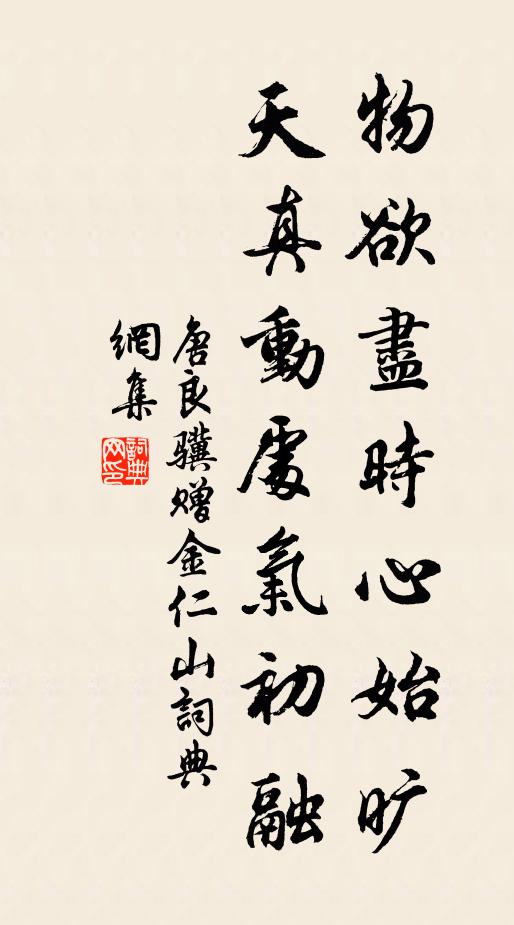 物欲盡時心始旷
天真動處氣初融
唐良骥贈金仁山詞典
網集
詞典網印